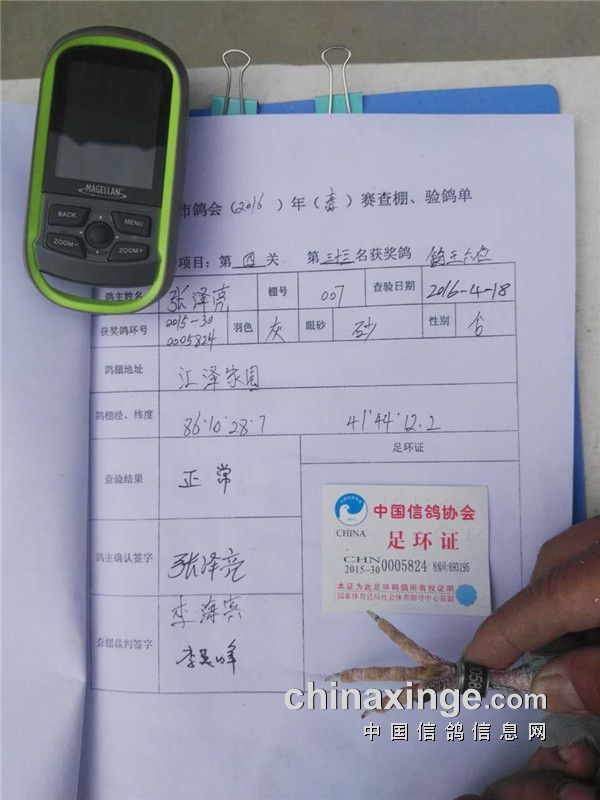 MAGELLAN
BACK
MENU
ZOOM-
ZOOM+
市鸽会（2016）年（春）赛查棚、验鸽单
项目：第 四 关 第 三十三 名获奖鸽
鸽主姓名 张泽亮 棚号 007 查验日期 2016-4-18
获奖鸽环号 2015-30 0005824 羽色 灰 眼砂 砂 性别
鸽棚地址 江泽家园
鸽棚经、纬度 86·10·28·7 41·44·12.2
查验结果 正常 足环证
鸽主确认签字 张泽亮
查棚裁判签字 李海宾
中国信鸽协会
CHINA
足环证
CHN
2015-30 0005824 校验码:693195
本证为此足环码鸽所有权证明
国家体育总局社会体育指导中心监制
chinaxinge.com
中国信鸽信息网